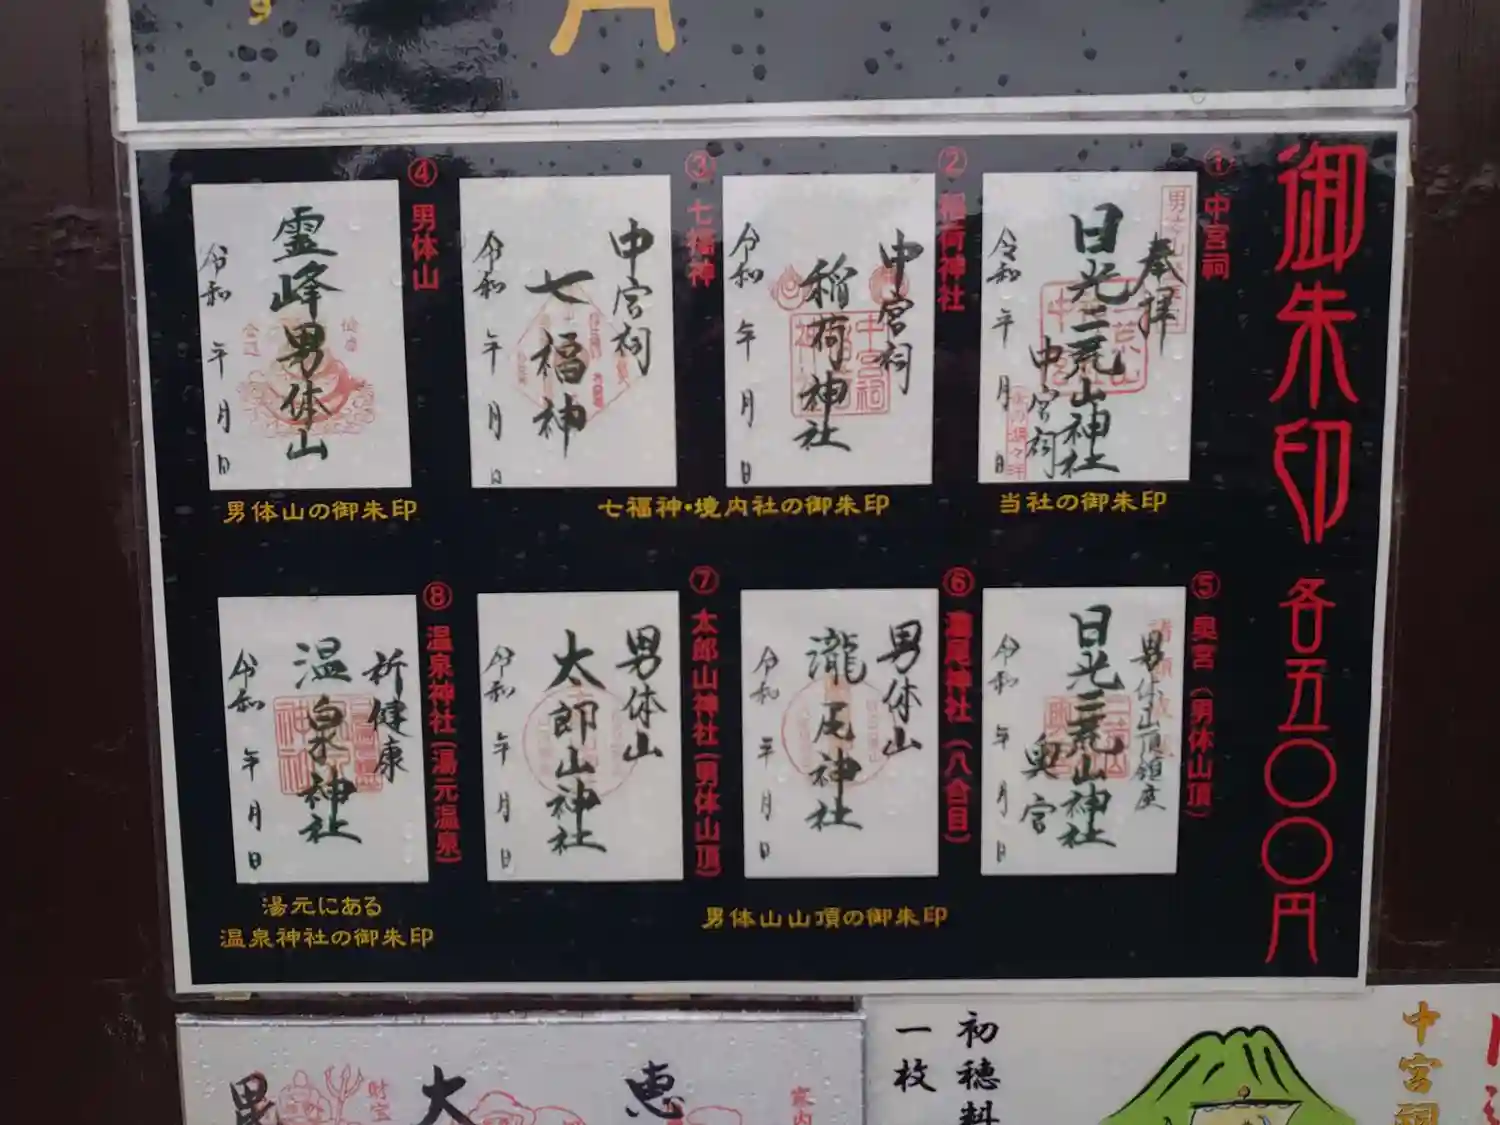 御朱印 各五〇〇円
①中宮祠
奉拝
日光二荒山神社
中宮祠
令和 年 月 日
②稲荷神社
中宮祠
稲荷神社
令和 年 月 日
③七福神
中宮祠
七福神
令和 年 月 日
④男体山
霊峰男体山
令和 年 月 日
当社の御朱印
七福神・境内社の御朱印
男体山の御朱印
⑤奥宮(男体山頂)
男体山頂鎮座
日光二荒山神社
奥宮
令和 年 月 日
⑥瀧尾神社(八合目)
男体山
瀧尾神社
令和 年 月 日
⑦太郎山神社(男体山頂)
男体山
太郎山神社
令和 年 月 日
⑧温泉神社(湯元温泉)
祈健康
温泉神社
令和 年 月 日
男体山山頂の御朱印
湯元にある
温泉神社の御朱印
中宮祠
初穂料
一枚
恵
大
財宝